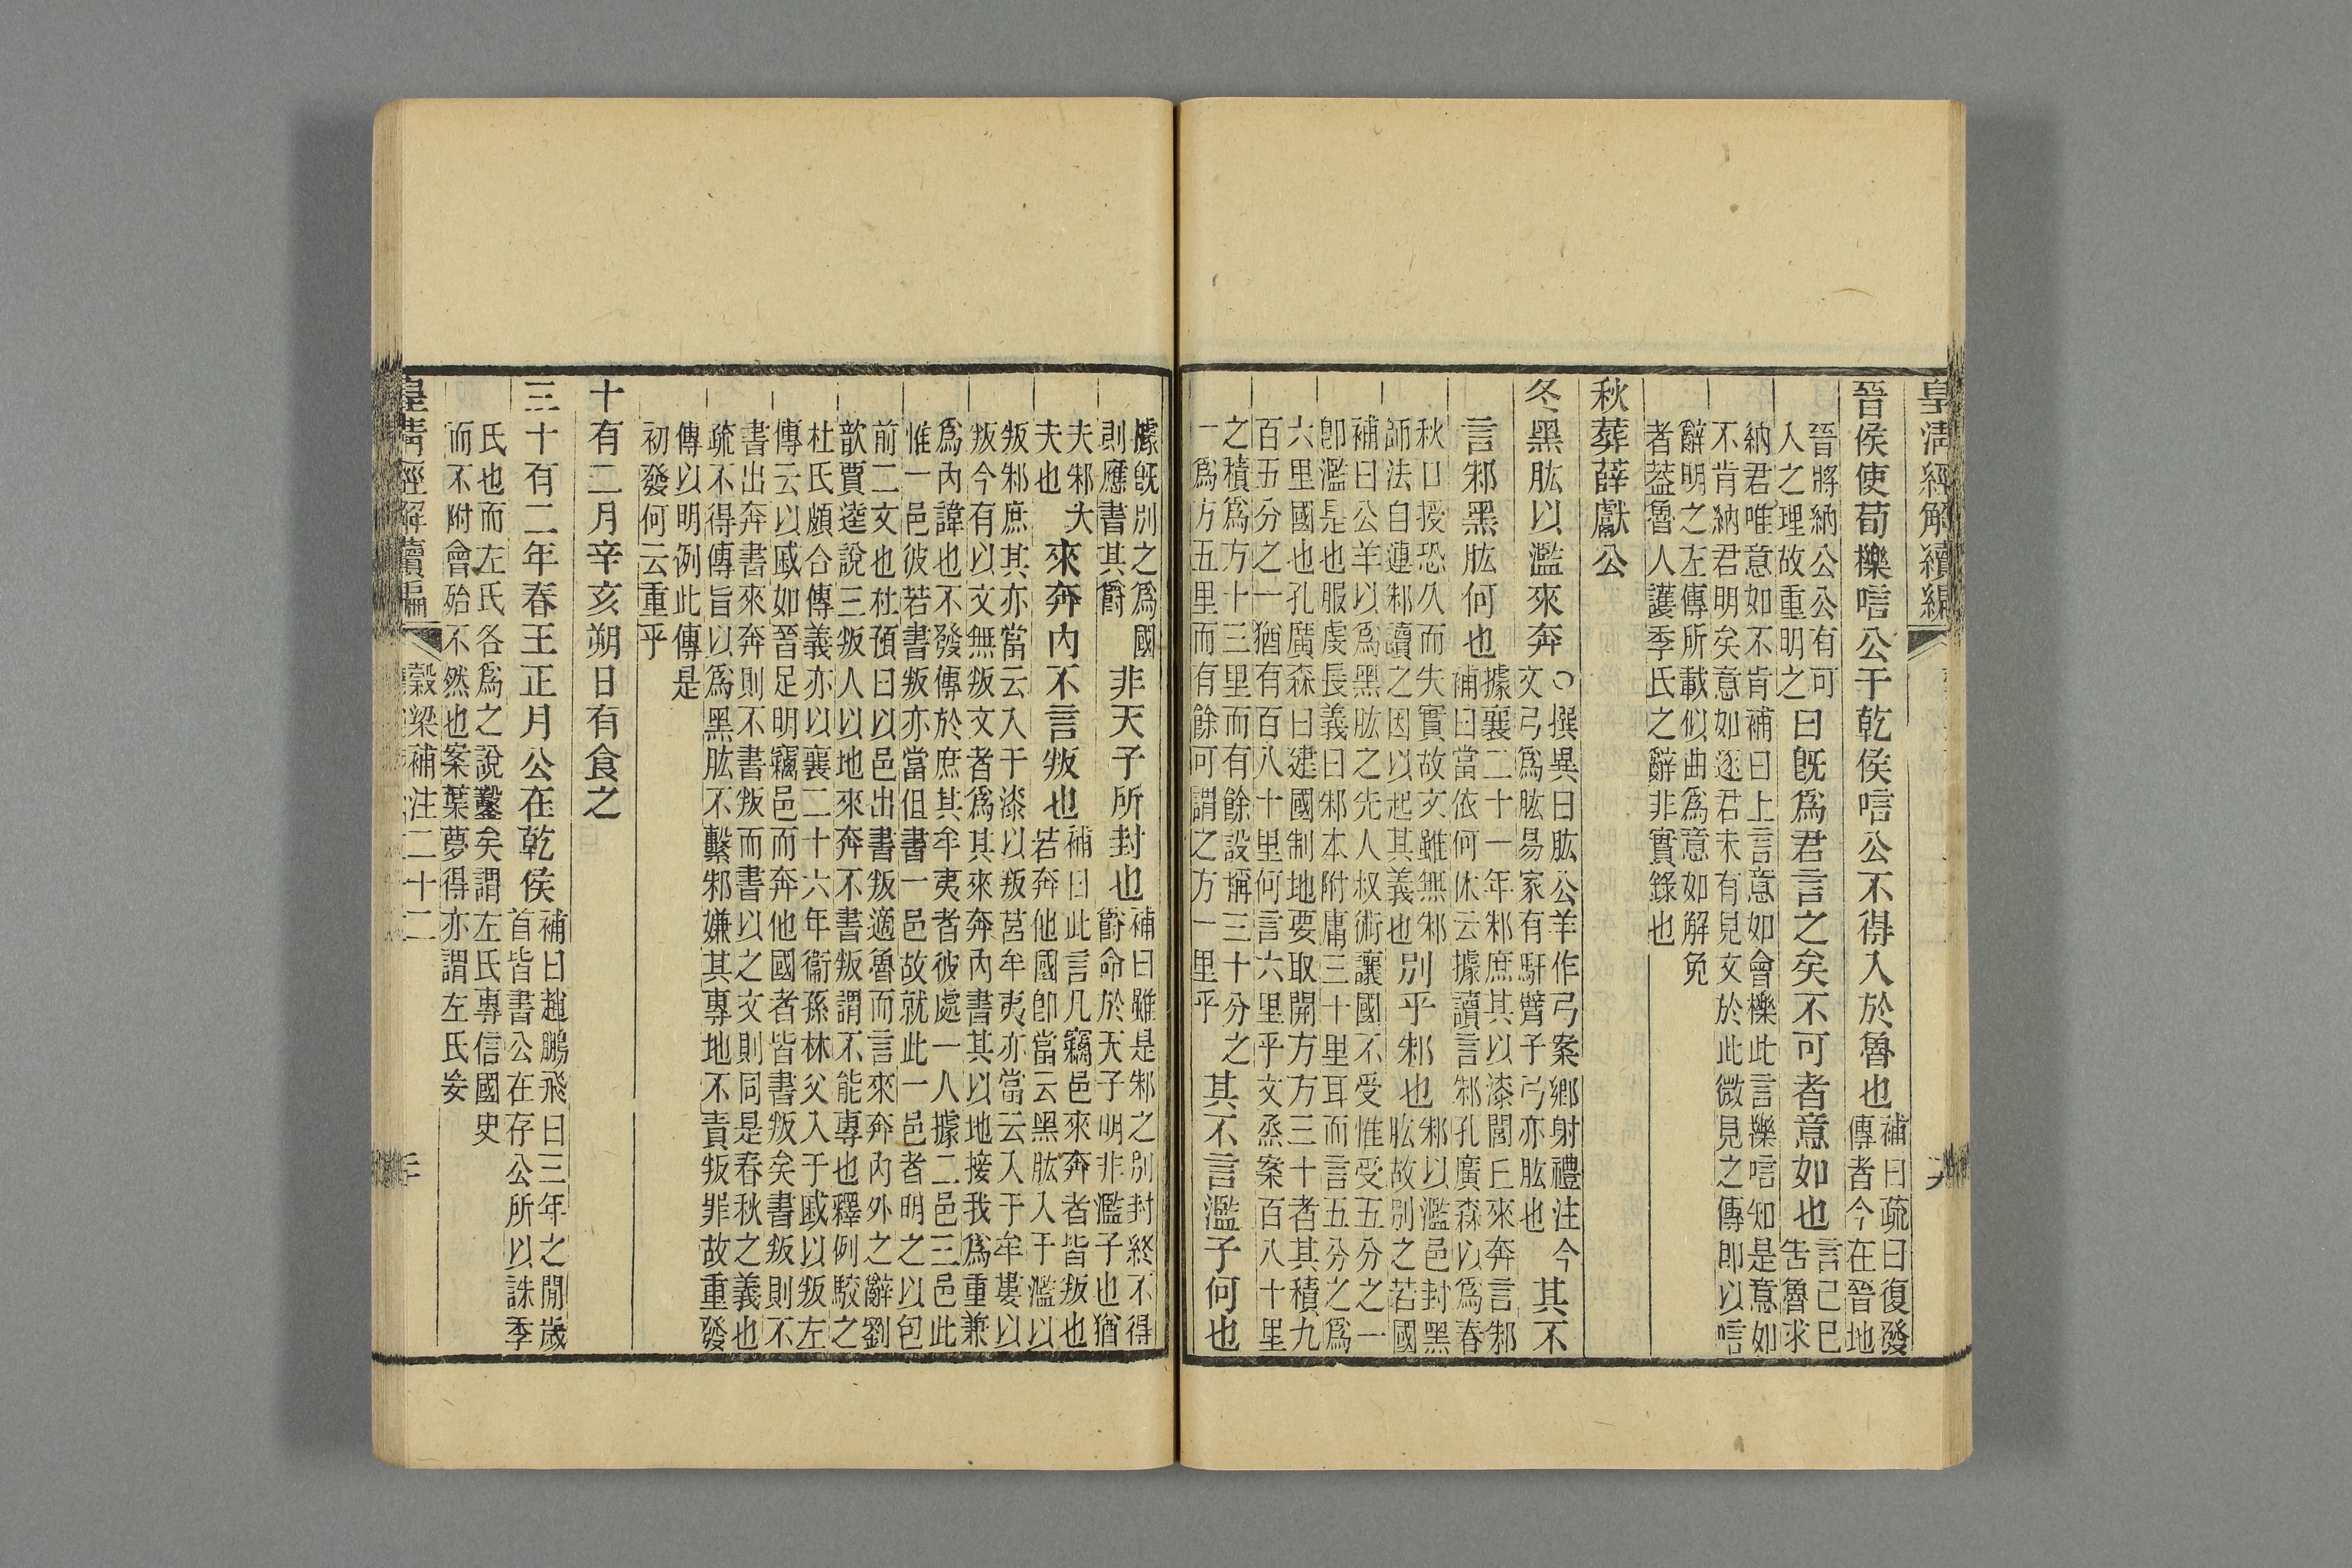 皇淸經解續編
晉侯使荀櫟唁公于乾侯唁公不得入於魯也
補曰疏曰復發
傳者今在晉地
晉將納公公有可
入之理故重明之
曰旣爲君言之矣不可者意如也
言己巳
告魯求
納君唯意如不肯補曰上言意如會櫟此言櫟唁知是意如
不肯納君明矣意如逐君未有見文於此微見之傳卽以唁
辭明之左傳所載似曲爲意如解免
者葢魯人護季氏之辭非實錄也
秋葬薛獻公
冬黑肱以濫來奔
○撰異曰肱公羊作弓案鄉射禮注今
文弓爲肱易家有馯臂子弓亦肱也
其不
言邾黑肱何也
據襄二十一年邾庶其以漆閭丘來奔言邾
補曰當依何休云據讀言邾孔廣森以爲春
秋口授恐久而失實故文雖無邾
師法自連邾讀之因以起其義也
別乎邾也
邾以濫邑封黑
肱故別之若國
補曰公羊以爲黑肱之先人叔術讓國不受惟受五分之一
卽濫是也服虔長義曰邾本附庸三十里耳而言五分之爲
六里國也孔廣森曰建國制地要取開方方三十者其積九
百五分之一猶有百八十里何言六里乎文烝案百八十里
之積爲方十三里而有餘設稱三十分之
一爲方五里而有餘可謂之方一里乎
其不言濫子何也
據旣別之爲國
則應書其爵
非天子所封也
補曰雖是邾之別封終不得
爵命於天子明非濫子也猶
夫邾大
夫也
來奔內不言叛也
補曰此言凡竊邑來奔者皆叛也
若奔他國卽當云黑肱入于濫以
叛邾庶其亦當云入于漆以叛莒牟夷亦當云入于牟婁以
叛今有以文無叛文者爲其來奔內書其以地接我爲重兼
爲內諱也不發傳於庶其牟夷者彼處一人據二邑三邑此
惟一邑彼若書叛亦當但書一邑故就此一邑者明之以包
前二文也杜預曰以邑出書叛適魯而言來奔內外之辭劉
歆賈逵說三叛人以地來奔不書叛謂不能專也釋例駮之
杜氏頗合傳義亦以襄二十六年衞孫林父入于戚以叛左
傳云以戚如晉足明竊邑而奔他國者皆書叛矣書叛則不
書出奔書來奔則不書叛而書以之文則同是春秋之義也
疏不得傳旨以爲黑肱不繫邾嫌其專地不責叛罪故重發
傳以明例此傳是
初發何云重乎
十有二月辛亥朔日有食之
三十有二年春王正月公在乾侯
補曰趙鵬飛曰三年之閒歲
首皆書公在存公所以誅季
氏也而左氏各爲之說鑿矣謂左氏專信國史
而不附會殆不然也案葉夢得亦謂左氏妄
皇淸經解續編
穀梁補注二十二